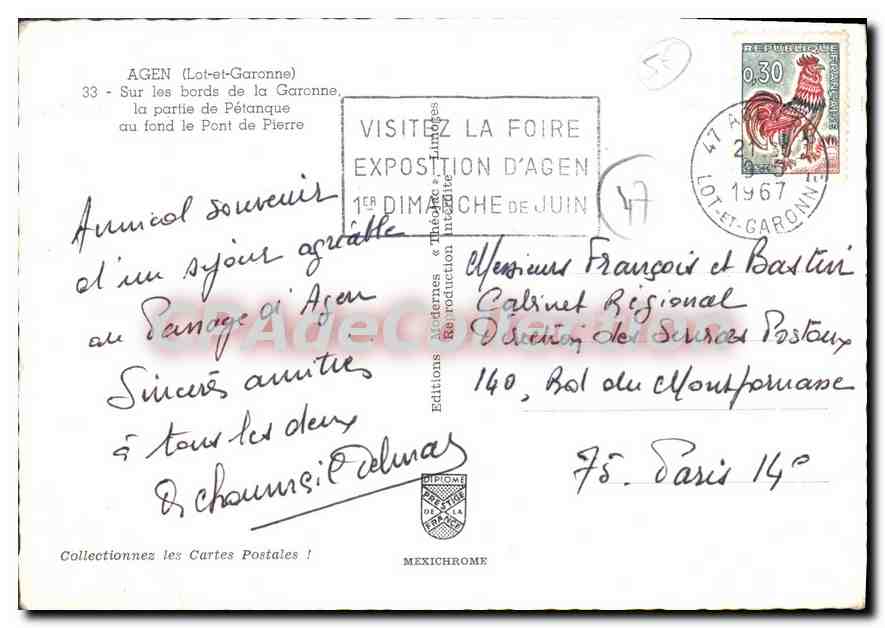 AGEN (Lot-et-Garonne)
33 - Sur les bords de la Garonne,
la partie de Pétanque
au fond le Pont de Pierre
VISITEZ LA FOIRE
EXPOSITION D'AGEN
1ER DIMANCHE DE JUIN
47
REPUBLIQUE FRANÇAISE
0,30
47 A
1967
LOT-ET-GARONNE
Amical souvenir
d'un séjour agréable
au Passage d'Agen
Sincères amitiés
à tous les deux
Editions Modernes « Théojac », Limoges
Reproduction interdite
Messieurs François et Bastin
Cabinet Régional
Direction des Services Postaux
140, Bd du Montparnasse
75. Paris 14e
CPAdeCollection
DIPLOME
PRESTIGE
DE LA
FRANCE
MEXICHROME
Collectionnez les Cartes Postales !